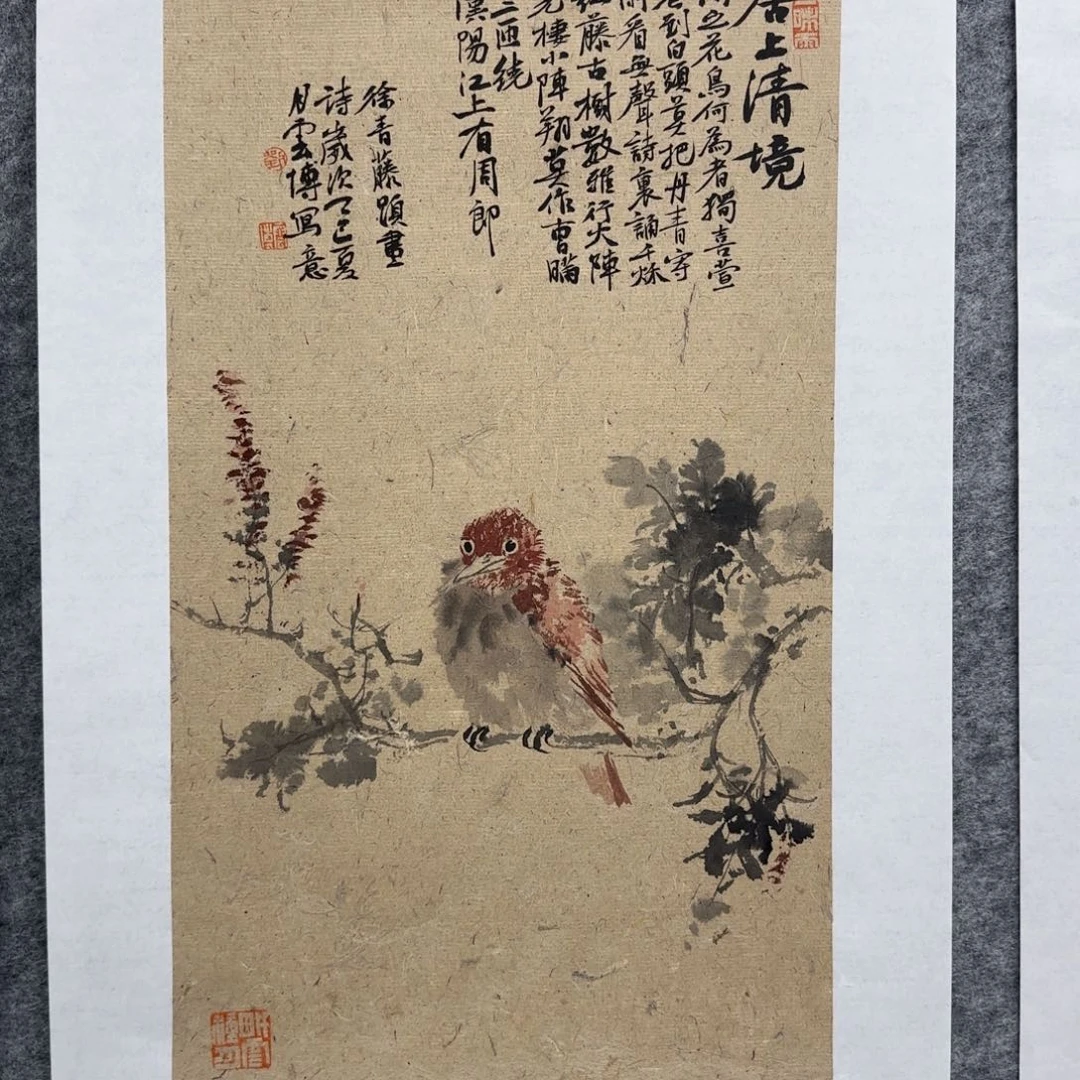 居上清境
之花鳥何為者獨喜萱
花到白頭莫把丹青等
閒看無聲詩裏誦千秌
藤古樹數雅行大陣
先棲小陣翔莫作曹瞞
三匝繞
漢陽江上有周郎
徐青藤題畫
詩歲次乙巳夏
月雲博寫意